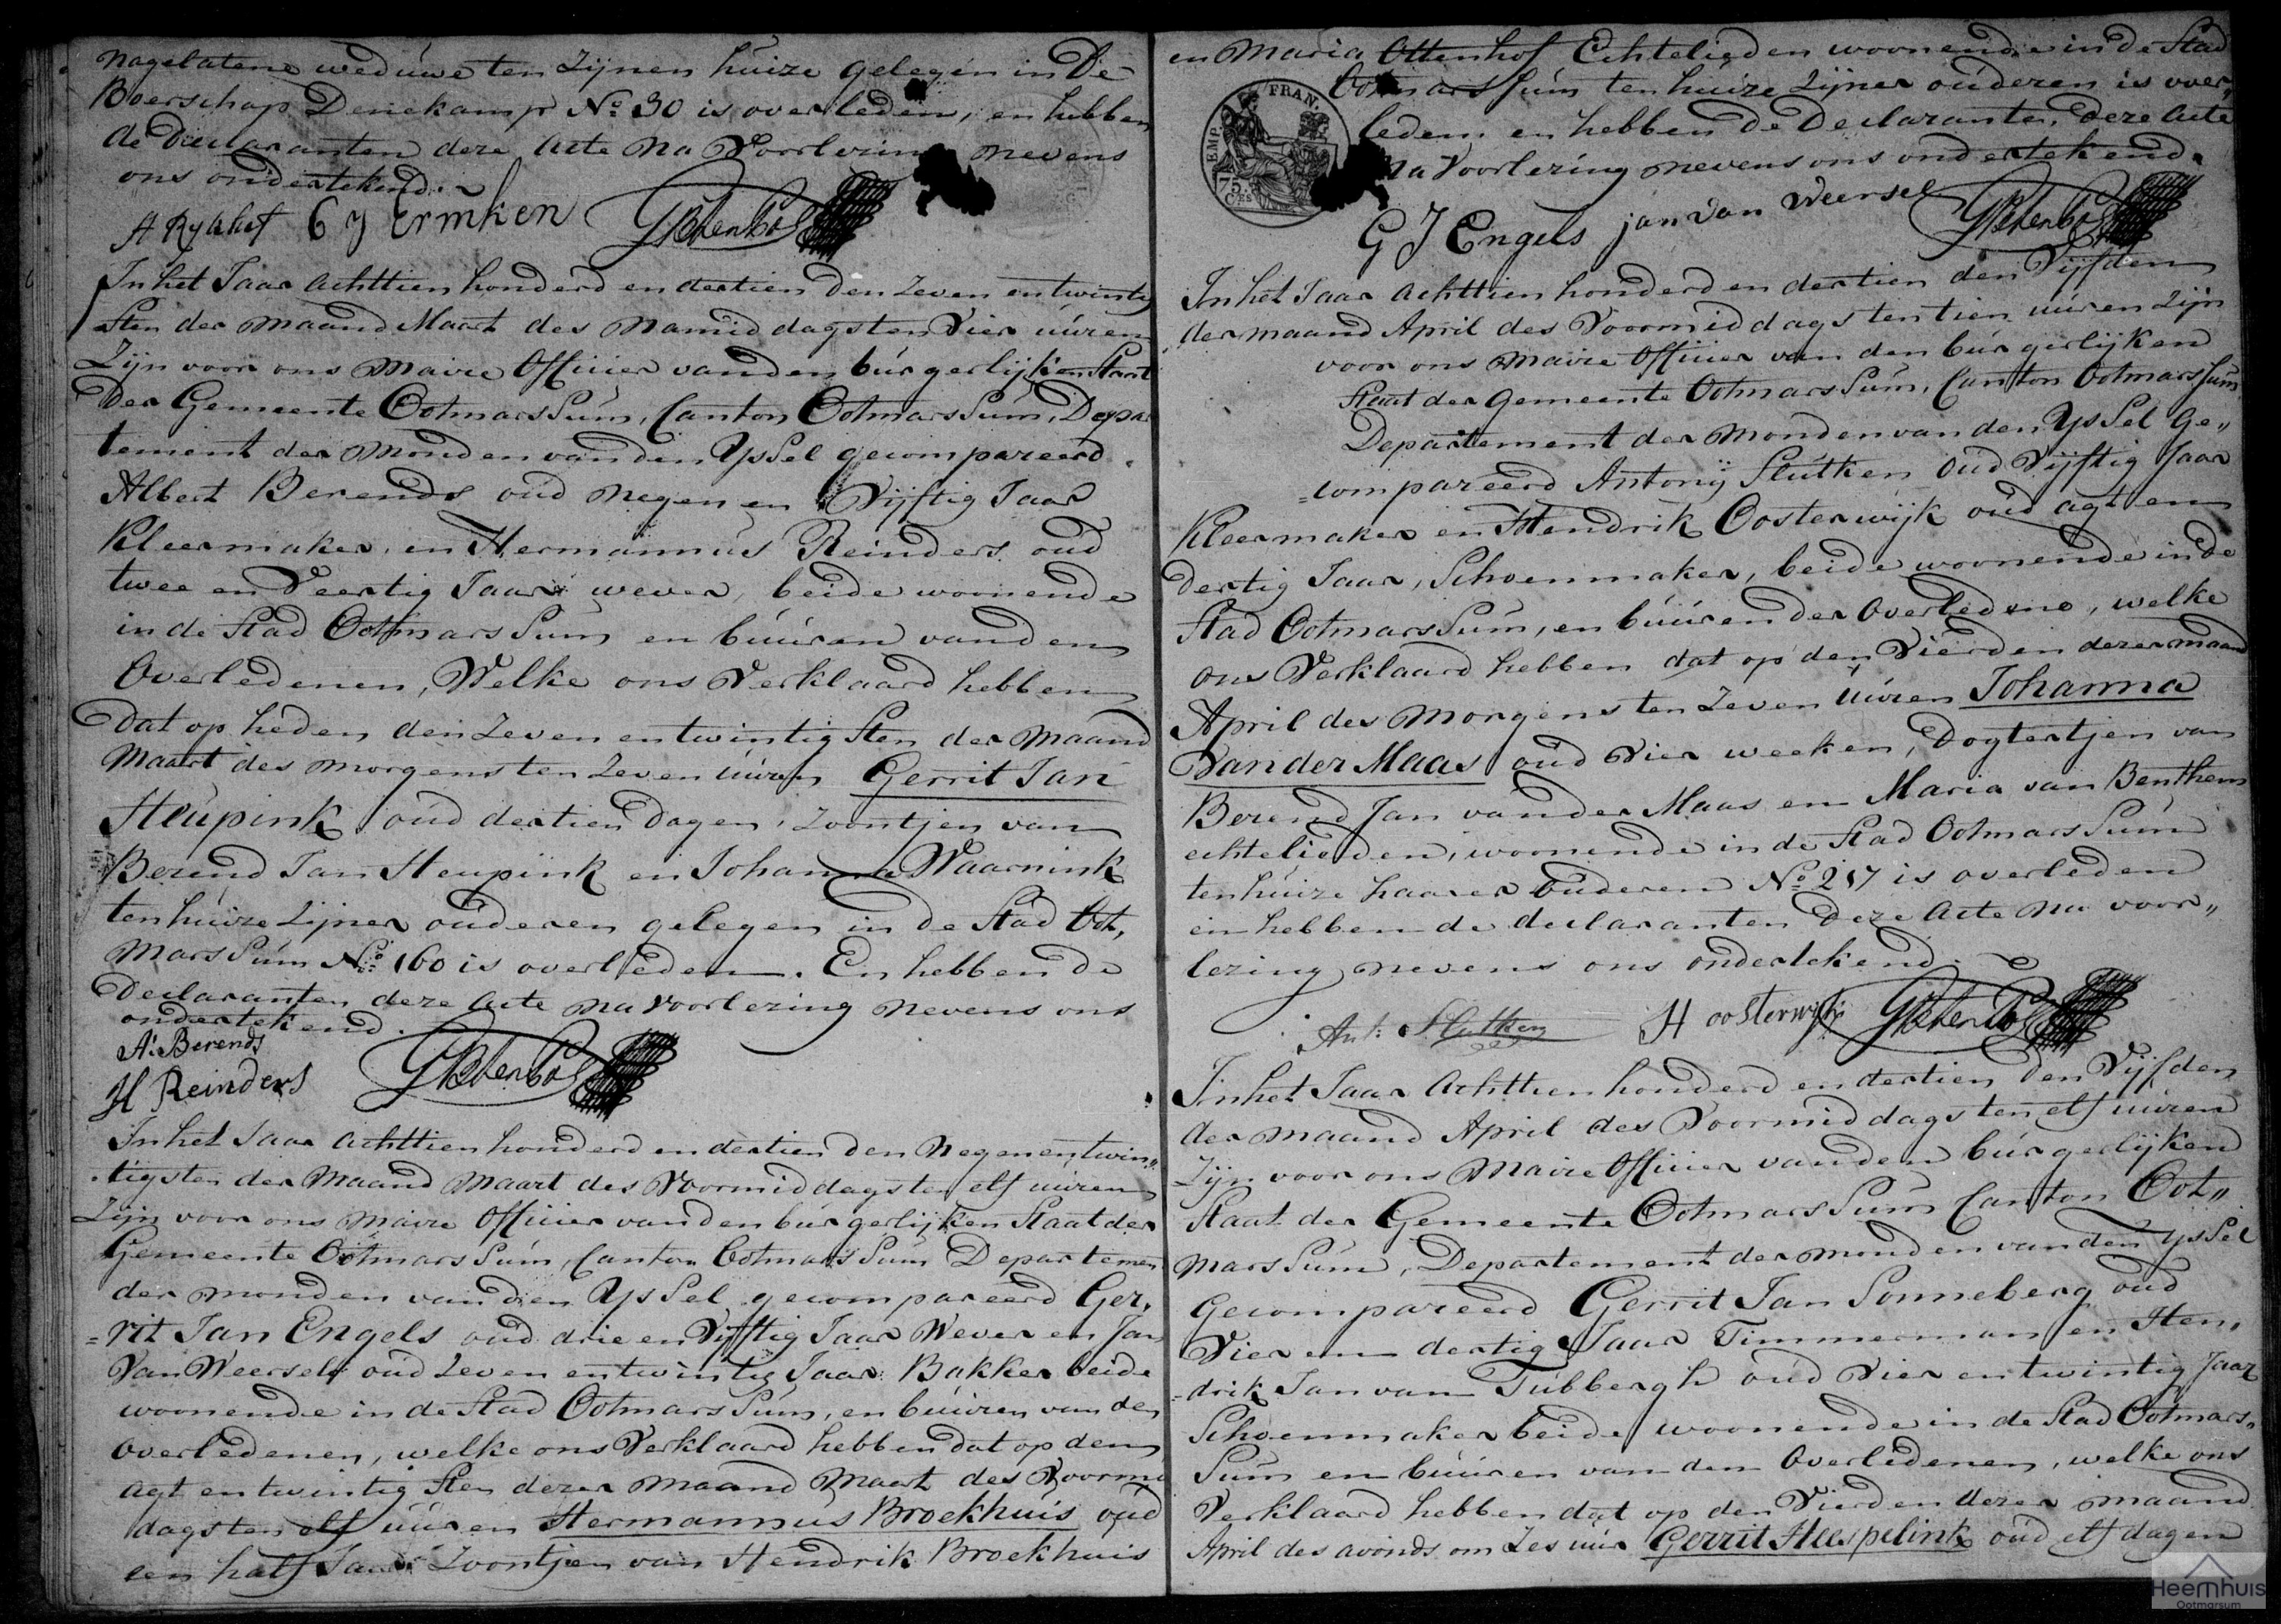 nagelatene weduwe ten zijnen huize gelegen in De
Boerschap Denekamp No. 30 is overleden, en hebben
de Declaranten deze Acte na Voorlezing nevens
ons ondertekend.
A Ryahof G J Ermken
In het Jaar Achttien honderd en dertien Den Zeven en twintig
sten der maand Maart des Namiddags ten Vier uúren
Zijn voor ons Maire Officier van den búrgerlijken Staat
Der Gemeente Ootmarssúm, Canton Ootmarssúm, Depar
tement der Monden van den Yssel gecompareerd
Albert Berends oud Negen en Vijftig Jaar
Kleermaker, en Hermannús Reinders oud
twee en Veertig Jaar wever, beide woonende
in de Stad Ootmarssum en búúren van den
Overledenen, Welke ons Verklaard hebben
Dat op heden den Zeven en twintigsten der Maand
Maart des morgens ten Zeven úúren Gerrit Jan
Heúpink oúd dertien Dagen, Zoontjen van
Berend Jan Heupink en Johanna Waarnink
ten húize Zijner oúderen gelegen in de Stad Oot,
marssúm No. 160 is overleden. En hebben de
Declaranten deze Acte na voorlezing nevens ons
ondertekend.
A. Berends
H Reinders
In het Jaar Achttien honderd en dertien Den Negen en twin„
tigsten der Maand Maart des Voormiddags ten elf uúren
Zijn voor ons Maire Officier van den búrgerlijken Staat der
Gemeente Ootmarssúm, Canton Ootmarssúm Departemen
der monden van den Yssel gecompareerd Ger,
=rit Jan Engels oud drie en Vijftig Jaar Wever en Jan
Van Weersel oúd Zeven en twintig Jaar Bakker beide
woonende in de Stad Ootmarssúm, en búúren van den
Overledenen, welke ons Verklaard hebben dat op den
agt en twintigsten dezer maand Maart des Voormid
dags ten elf úúren Hermannus Broekhuis oúd
een half Jaar Zoontjen van Hendrik Broekhuis
en Maria Ottenhof Echtelieden woonende in de Stad
Ootmarssúm ten húize Zijner oúderen is over„
leden en hebben de Declaranten, Deze Acte
na Voorlezing nevens ons ondertekend.
EMP. FRAN.
75
CES
G J Engels jan van Weersel
In het Jaar Achttien honderd en dertien den Vijfden
der maand April des Voormiddags ten tien uúren Zijn
voor ons Maire Officier van den búrgerlijken
Staat der Gemeente Ootmarssúm, Canton Ootmarssúm
Departement der Monden van den Yssel Ge„
=compareerd Antonij Slútken Oúd Vijftig Jaar
Kleermaker en Hendrik Oosterwijk oúd agt en
Dertig Jaar, Schoenmaker, beide woonende in de
Stad Ootmarssúm, en búúren der Overledene, welke
ons Verklaard hebben dat op den Vierden dezer maand
April des Morgens ten Zeven úúren Johanna
Van der Maas oúd Vier weeken, Dogtertjen van
Berend Jan van der Maas en Maria van Benthem
echtelieden, woonende in de Stad Ootmarssúm
ten húize haarer oúderen No. 217 is overleden
en hebben de declaranten Deze Acte na voor„
lezing nevens ons ondertekend.
Ant: Slutken H oosterwijk
In het Jaar Achttien honderd en dertien Den Vijfden
der maand April des Voormiddags ten elf uúren
Zijn voor ons Maire Officier van den búrgerlijken
Staat der Gemeente Ootmarssúm Canton Oot„
marssúm, Departement der monden van den Yssel
Gecompareerd Gerrit Jan Sonneberg oúd
Vier en dertig Jaar Timmerman en Hen,
=drik Jan van Tubbergh oúd Vier en twintig Jaar
Schoenmaker beide woonende in de Stad Ootmars„
súm en búúren van den Overledenen, welke ons
Verklaard hebben dat op den Vierden dezer maand
April des avonds om Zes uúr Gerrit Heespelink oúd elf dagen
Heemhuis
Ootmarsum